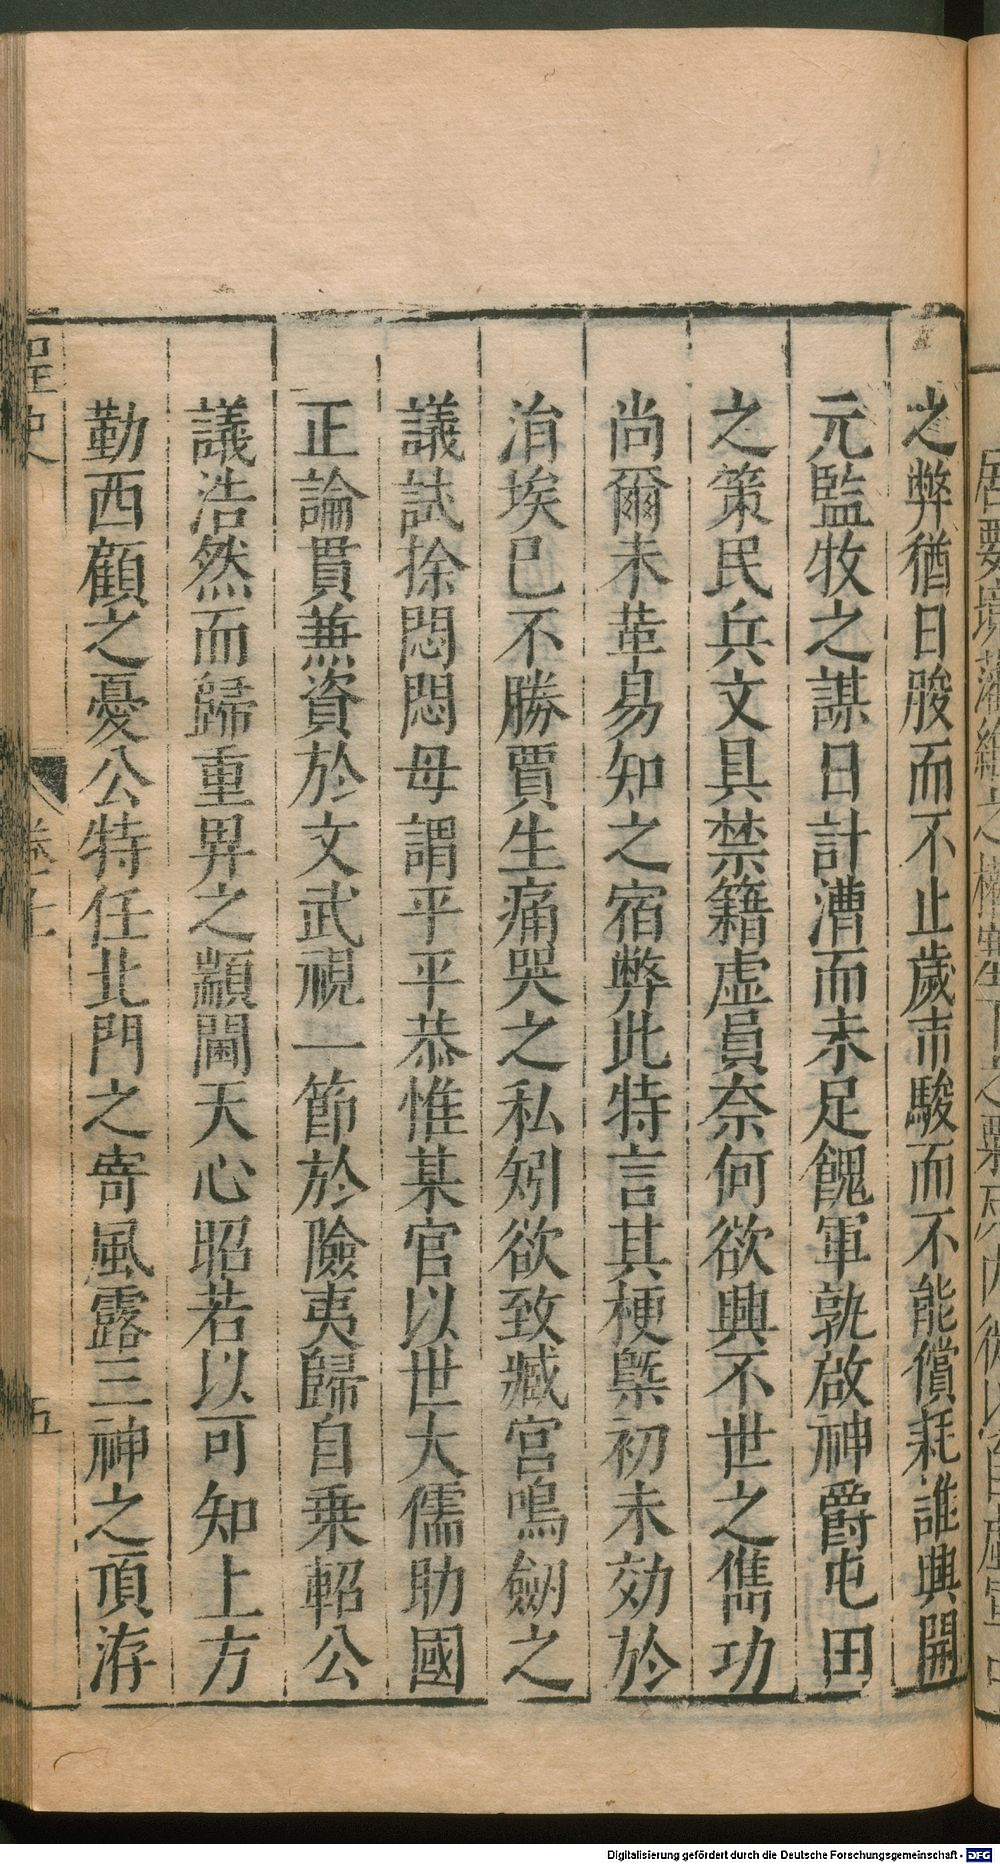 之弊猶日朘而不止歲市駿而不能償耗誰興開
元監牧之謀日計漕而未足餽軍孰啟神爵屯田
之策民兵文具禁籍虛員奈何欲興不世之雋功
尚爾未革易知之宿弊此特言其梗槩初未効於
涓埃已不勝賈生痛哭之私矧欲致臧宮鳴劒之
議試徐悶悶毋謂平平恭惟某官以世大儒助國
正論貫兼資於文武視一節於險夷歸自乗軺公
議浩然而歸重畀之顓閫天心昭若以可知上方
勤西顧之憂公特任北門之寄風露三神之頂洊
桯史
卷十
五
Digitalisierung gefördert durch die Deutsche Forschungsgemeinschaft - DFG